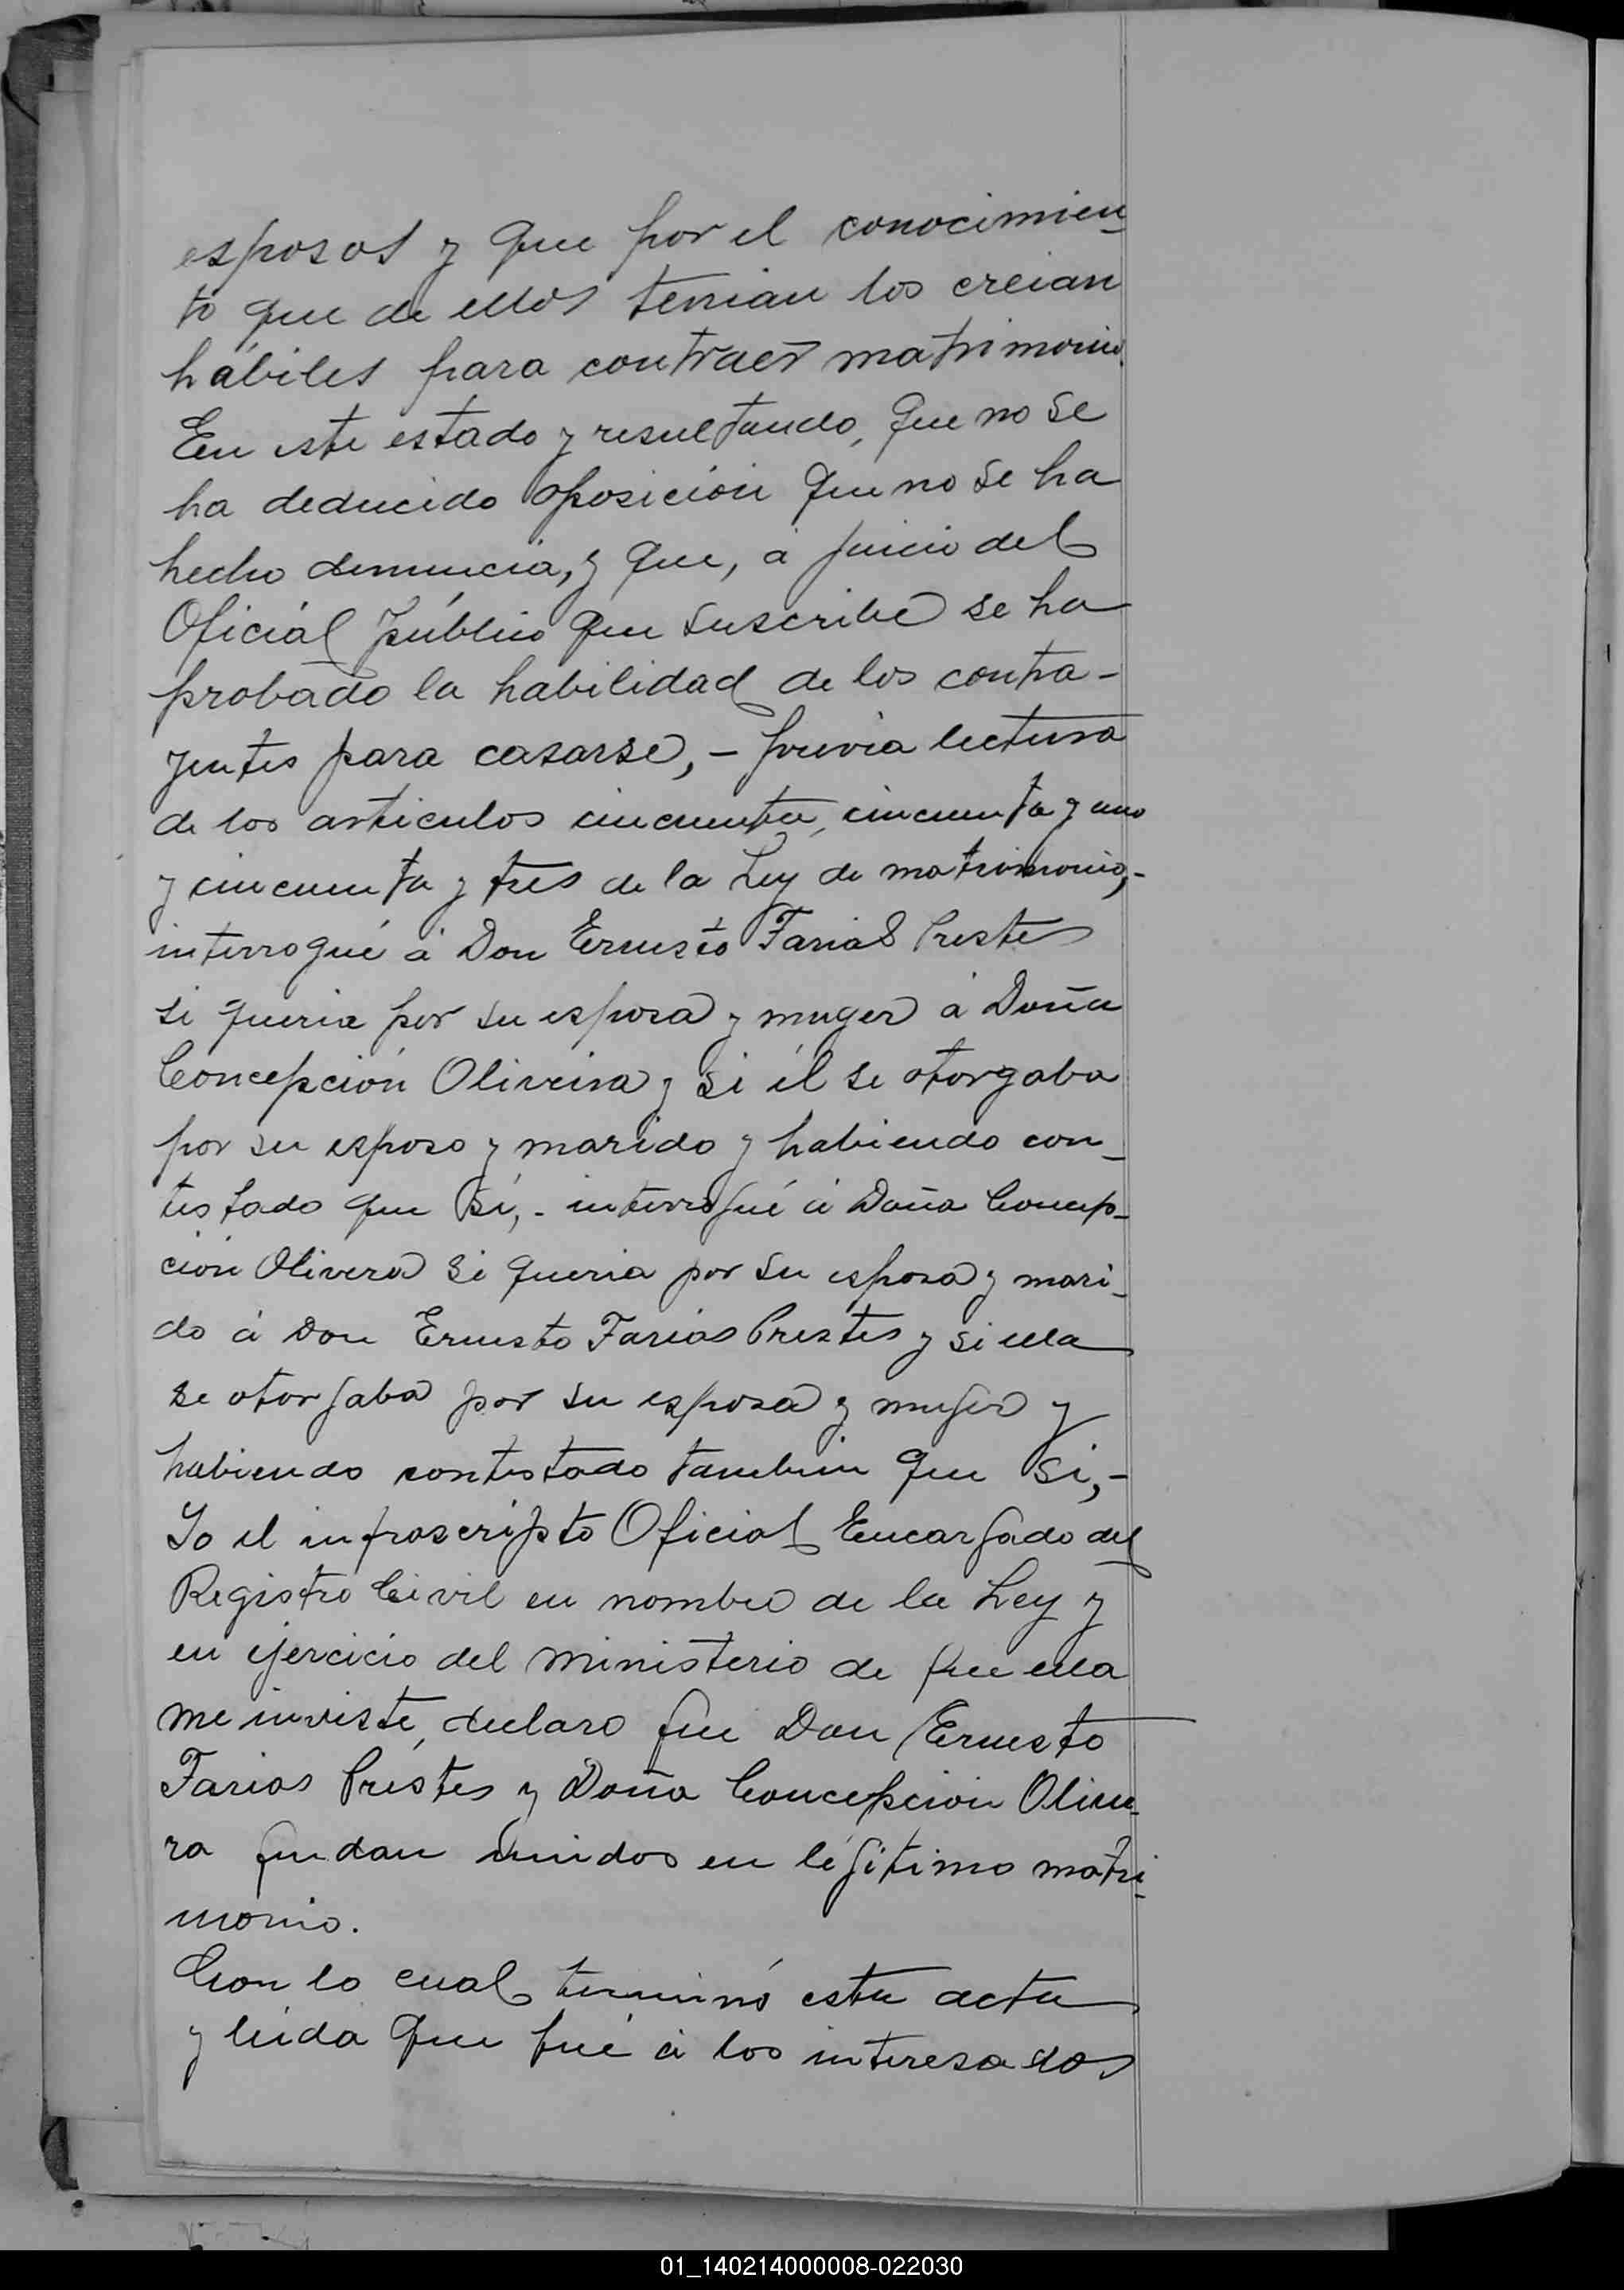 esposos y que por el conocimien_
to que de ellos tenian los creian
hábiles para contraer matrimonio.
En este estado y resultando, que no se
ha deducido oposición que no se ha
hecho denuncia, y que, á juicio del
Oficial público que suscribe se ha
probado la habilidad de los contra-
yentes para casarse, - previa lectura
de los articulos cincuenta, cincuenta y uno
y cincuenta y tres de la Ley de matrimonio,-
interrogué á Don Ernesto Farias Prestes
si queria por su esposa y muger á Doña
Concepción Oliveira y si él se otorgaba
por su esposo y marido y habiendo con_
testado que si,- interrogué á Doña Concep_
ción Olivera si queria por su esposo y mari_
do á Don Ernesto Farias Prestes y si ella
se otorgaba por su esposa y muger y
habiendo contestado tambien que si,-
Yo el infrascripto Oficial Encargado del
Registro Civil en nombre de la Ley y
en ejercicio del ministerio de que ella
me inviste, declaro que Don Ernesto
Farias Prestes y Doña Concepción Olive_
ra quedan unidos en légitimo matri_
monio.
Con lo cual terminó esta acta
y leida que fué á los interesados
01_140214000008-022030